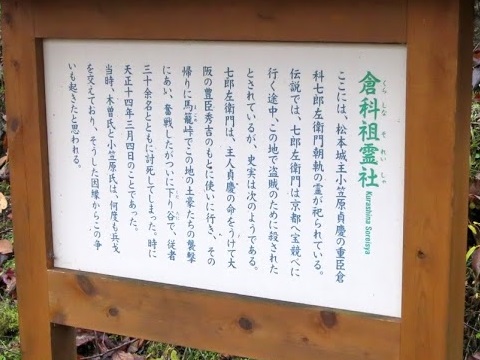 倉科祖霊社
くらしなそれいしゃ
Kurashina Soreisya
ここには、松本城主小笠原貞慶の重臣倉
科七郎左衛門朝軌の霊が祀られている。
伝説では、七郎左衛門は京都へ宝競べに
行く途中、この地で盗賊のために殺された
とされているが、史実は次のようである。
七郎左衛門は、主人貞慶の命をうけて大
阪の豊臣秀吉のもとに使いに行き、その
帰りに馬籠峠でこの地の土豪たちの襲撃
にあい、奮戦したがついに下り谷で、従者
三十余名とともに討死してしまった。時に
天正十四年三月四日のことであった。
当時、木曽氏と小笠原氏は、何度も兵戈
を交えており、そうした因縁からこの争
いも起きたと思われる。